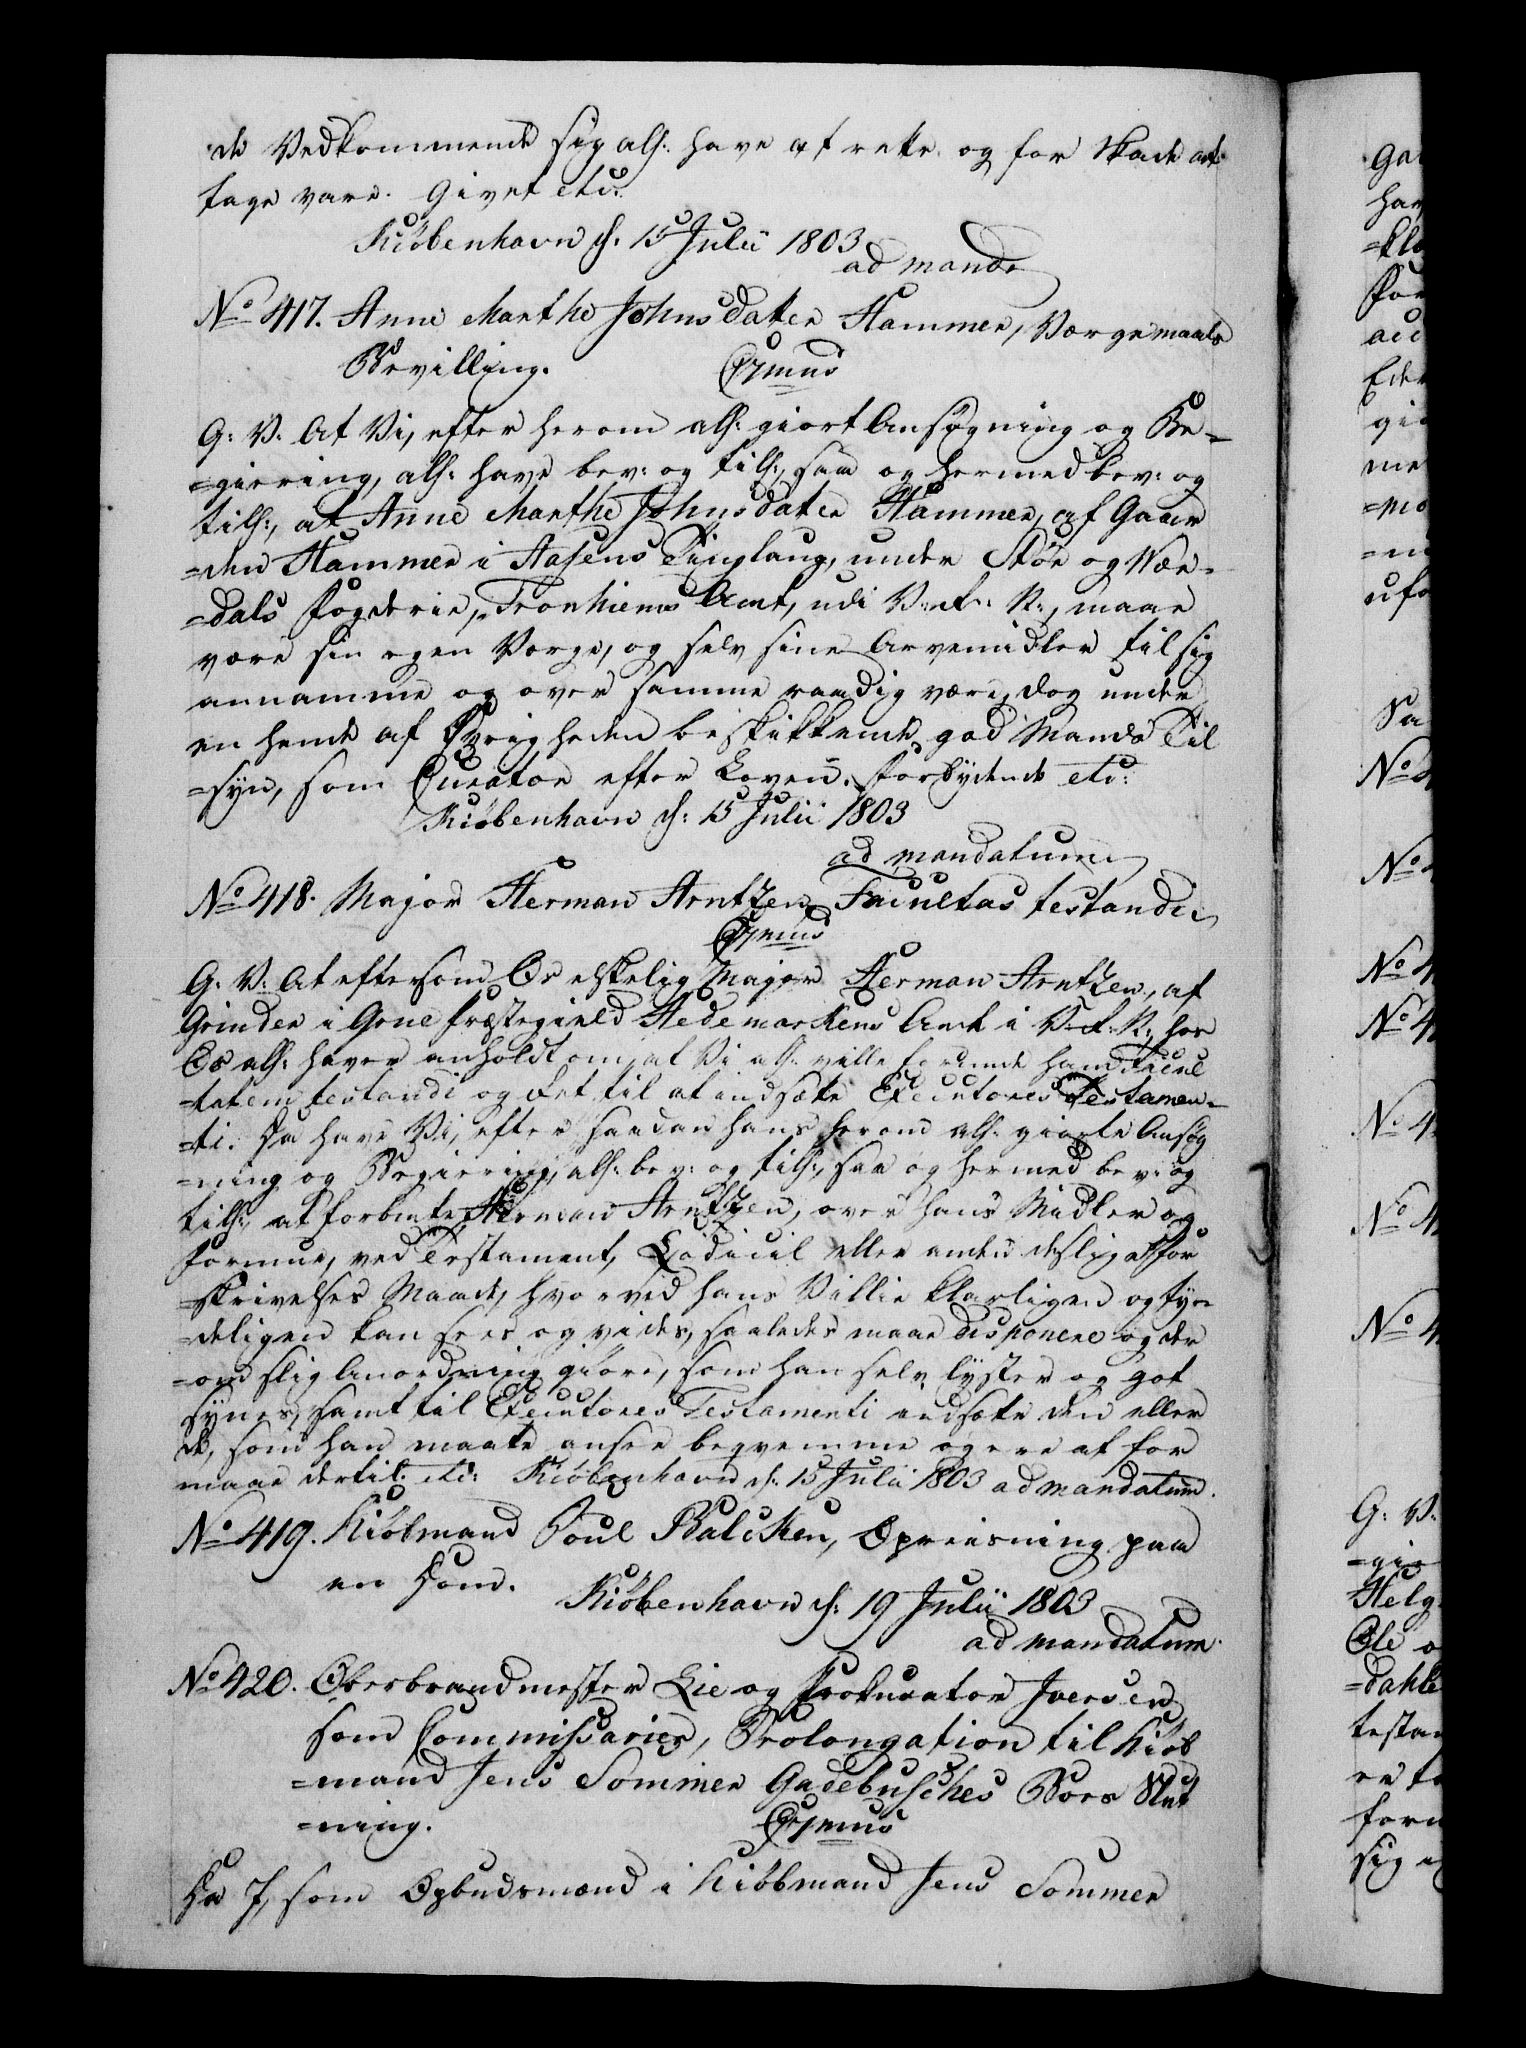 de Vedkommende sig all: have at rette og for Skade at
tage vare. Givet etc:
Kiöbenhavn d. 15 Julii 1803
ad mand:
No 417. Anne Marthe Johnsdatter Hammer, Værgemaals
Bevilling.
G: V: At Vi, efter herom all: giort Ansøgning og Be-
=giering, all: have bev: og till:, saa og hermed bev: og
till:, at Anne Marthe Johnsdatter Hammer, af Gaar
=den Hammer i Aasens Tinglaug, under Stör og Vær-
=dals Fogderie, Tronhiems Amt, udi V: R: N:, maae
være sin egen Værge, og selv sine Arvemidler til sig
annamme og over samme raadig være, dog under
en hende af Øvrigheden beskikkende god Mands Til
=syn, som Curator efter Loven. Forbydende etc:
Kiöbenhavn d: 15 Julii 1803
ad mandatum
No 418. Major Herman Arntzen Facultas testandi
G: V: At eftersom Os elskelig Major Herman Arntzen, af
Grinder i Grue Præstegield Hedemarkens Amt i V. R. N:, hos
Os all: haver anholdt om, at Vi all: ville forunde ham Facul
=tatem testandi og Ret til at indsætte Executores Testamen-
=ti. Da have Vi, efter saadan hans herom all: giorte Ansøg
=ning og Begiering, all: bev: og till:, saa og hermed bev: og
till:, at forbmte Herman Arntzen, over hans Midler og
Formue, ved Testament, Codicil eller anden deslige For
=skrivelses Maade, hvorved hans Villie klarligen og tyr
=deligen kan sees og vides, saaledes maae disponere og der
=om slig Anordning giöre, som han selv lyster og got
synes, samt til Executores Testamenti indsætte den eller
de, som han maatte ansee beqvemme og eragt for
maae dertil. etc: Kiöbenhavn d: 15 Julii 1803 ad mandatum.
No 419. Kiöbmand Poul Balcken, Opreisning paa
en Dom.
Kiöbenhavn d: 19 Julii 1803
ad mandatum.
No 420. Overbrandmester Lie og Prokurator Iversen
som Commissarier, Prolongation til Kiöb
=mand Jens Sommer Gadebusches Boes Slut
=ning.
Da I, som Opbudsmænd i Kiöbmand Jens Sommer